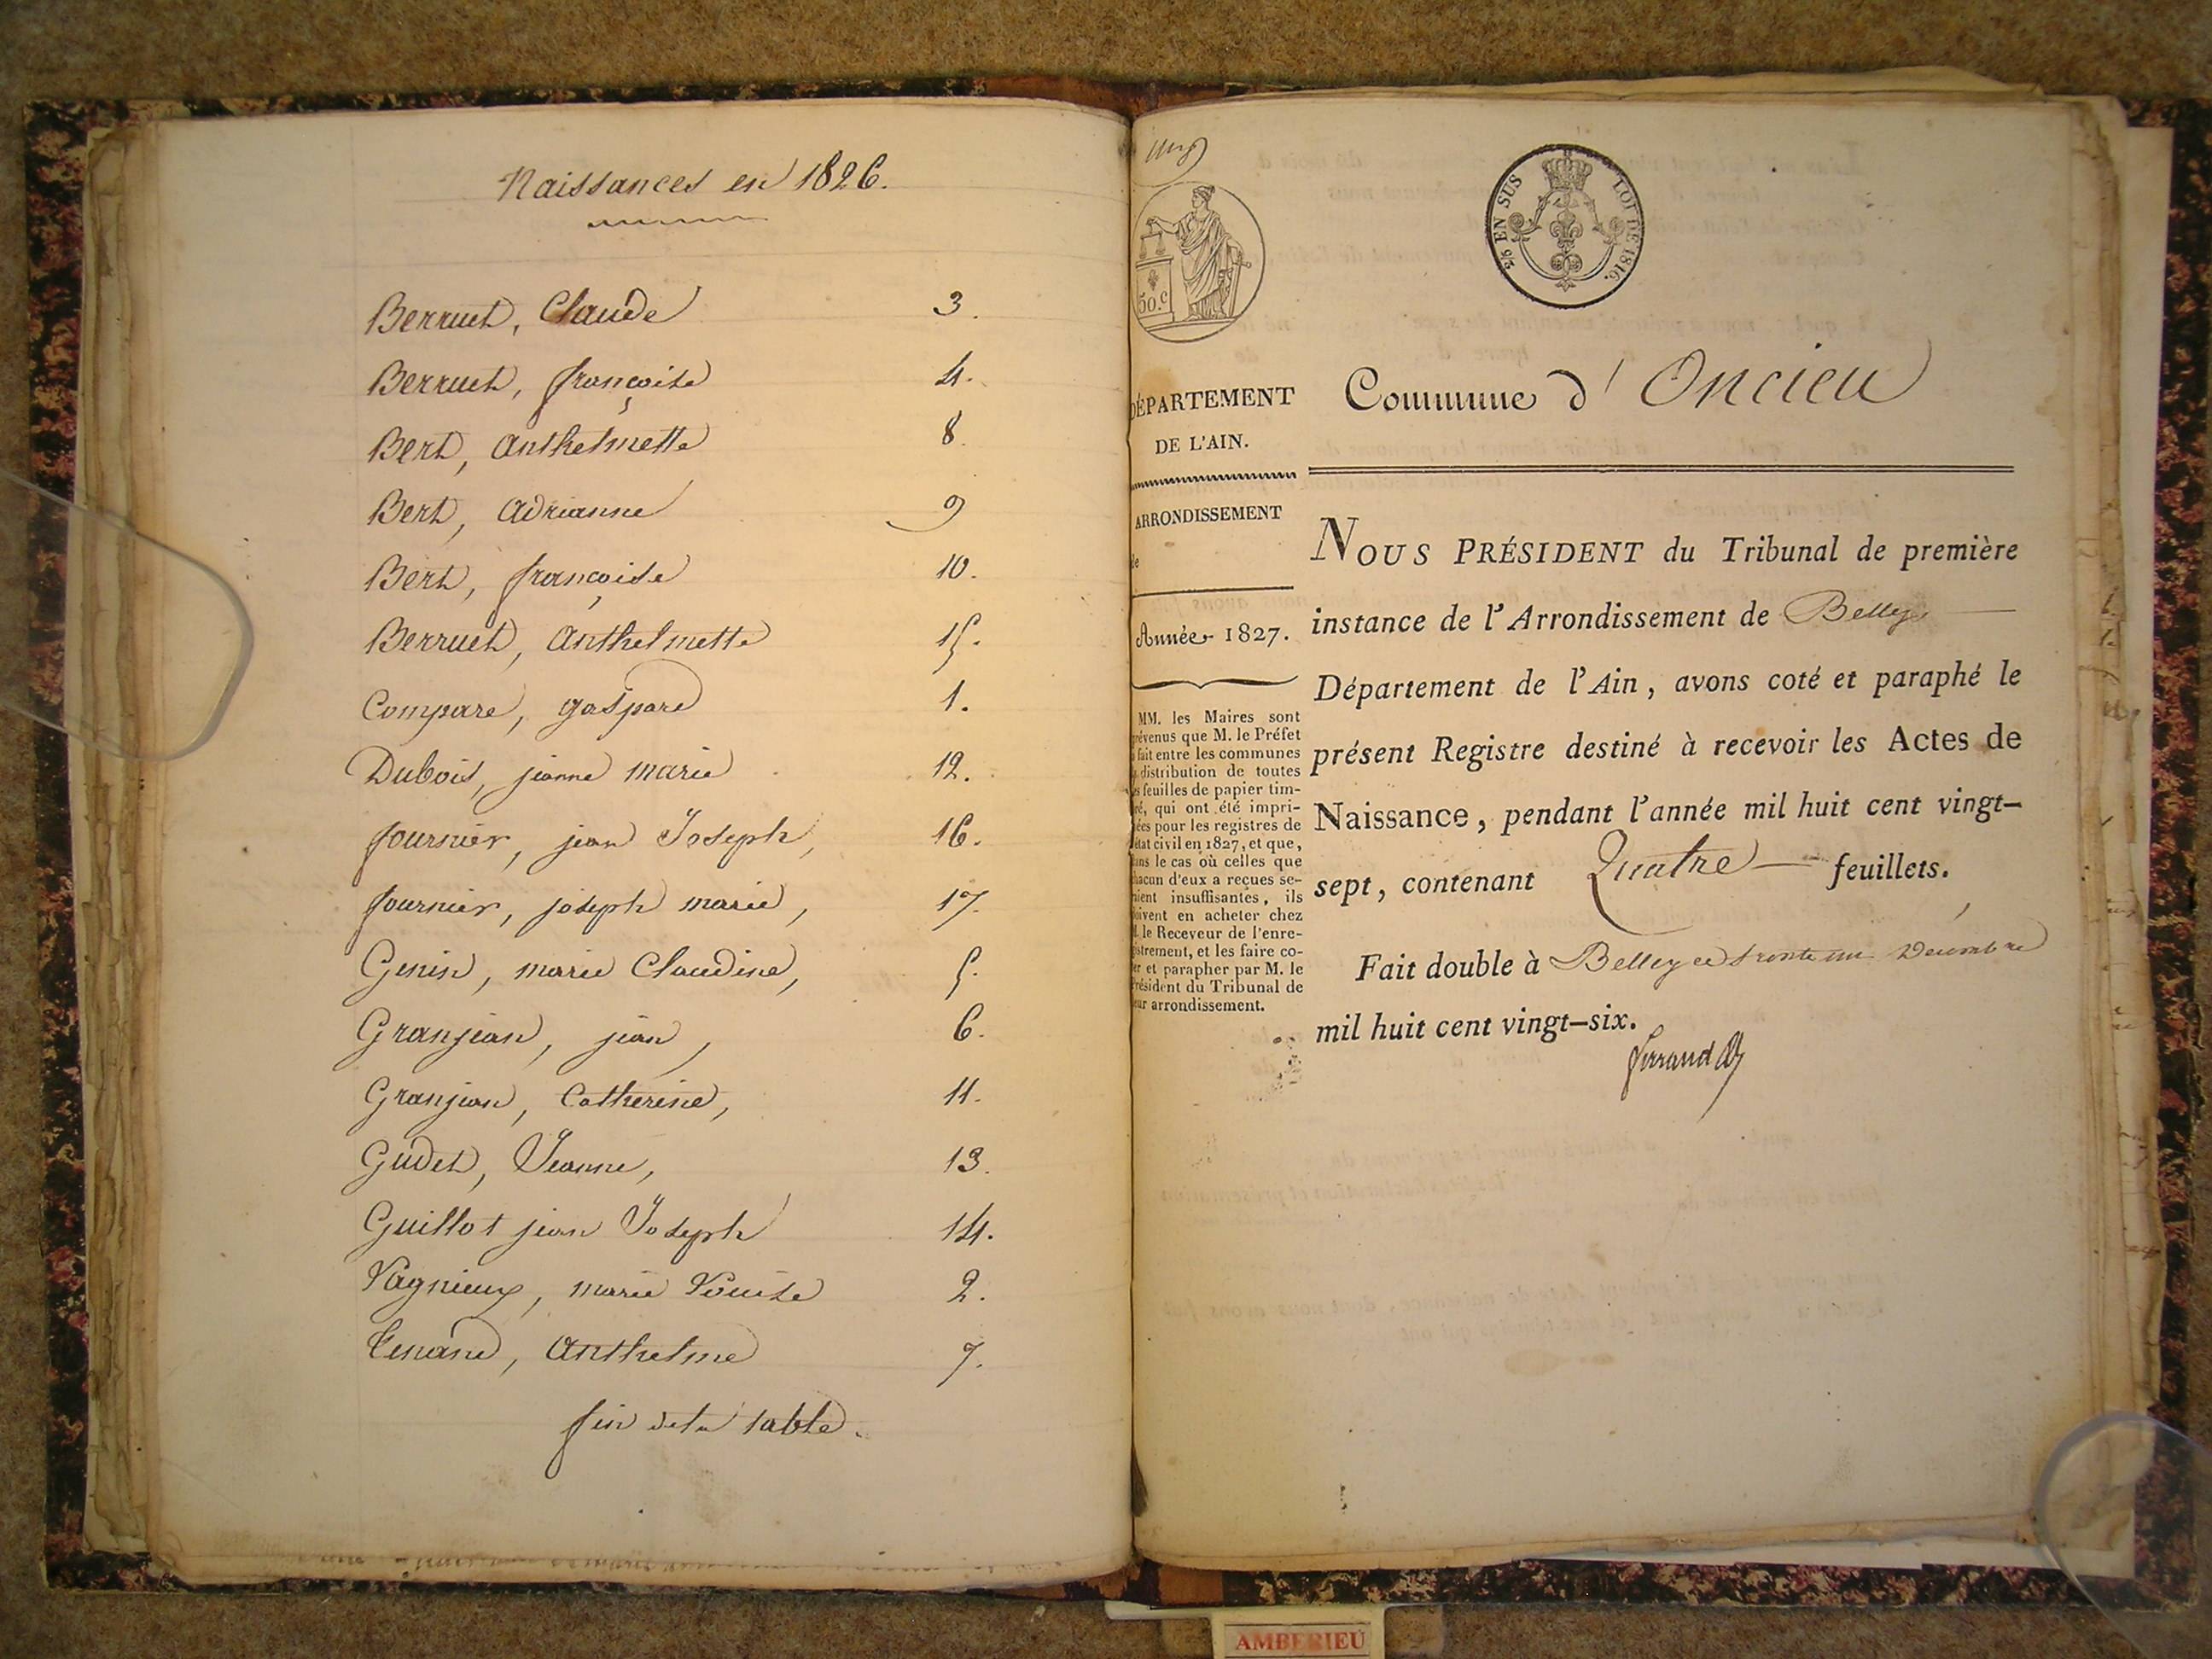 Naissances en 1826.
Berruet, Claude 3.
Berruet, françoise 4.
Bert, Anthelmette 8.
Bert, Adrianne 9
Bert, françoise 10.
Berruet, Anthelmette 15.
Compare, gaspard 1.
Dubois, jeanne marie 12.
fournier, jean Joseph, 16.
fournier, joseph marie, 17.
Genin, marie Claudine, 5.
Granjean, jean, 6.
Granjean, Catherine, 11.
Gudet, Jeanne, 13.
Guillot jean Joseph 14.
Vagnieux, marie Louise 2.
Tenand, Anthelme 7.
fin de la table.
50.c
25 EN SUS LOI DE 1816.
DÉPARTEMENT
DE L'AIN.
ARRONDISSEMENT
de
Année 1827.
MM. les Maires sont
prévenus que M. le Préfet
a fait entre les communes
la distribution de toutes
les feuilles de papier tim-
bré, qui ont été impri-
mées pour les registres de
l'état civil en 1827, et que,
dans le cas où celles que
chacun d'eux a reçues se-
raient insuffisantes, ils
doivent en acheter chez
M. le Receveur de l'enre-
gistrement, et les faire co-
ter et parapher par M. le
Président du Tribunal de
leur arrondissement.
Commune d'Oncieu
NOUS PRÉSIDENT du Tribunal de première
instance de l'Arrondissement de Belley
Département de l'Ain, avons coté et paraphé le
présent Registre destiné à recevoir les Actes de
Naissance, pendant l'année mil huit cent vingt-
sept, contenant Quatre feuillets.
Fait double à Belley ce trente un Décembre
mil huit cent vingt-six.
Ferrand
AMBERIEU